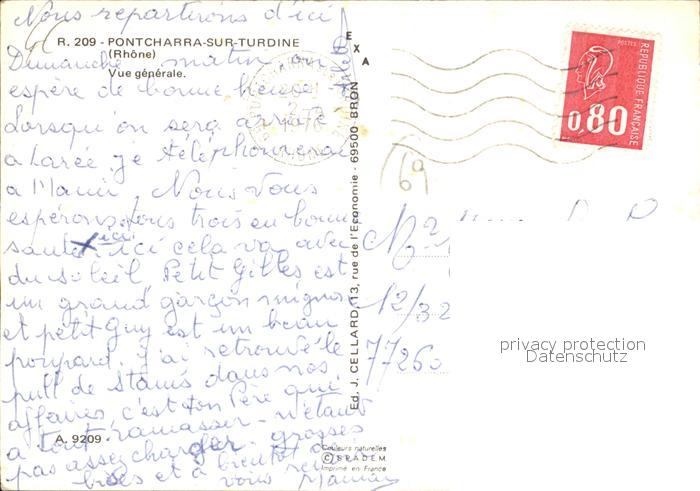 Nous repartirons d'ici
R. 209 - PONTCHARRA-SUR-TURDINE
(Rhône)
Vue générale.
Dimanche matin on
espère de bonne heure -
Lorsqu'on sera arrivé
a Larée je téléphonerai
a Mamie, Nous vous
espérons tous trois en bonne
santé ici cela va avec
du soleil, Petit Gilles est
un grand garçon mignon
et petit Guy est un beau
poupard. J'ai retrouvé le
pull de Stanis dans nos
affaires c'est ton Père qui
a tout ramasser - n'étant
pas assez charger - grosses
bises et a bientôt de
vous Maman
A. 9209
EXA
Ed. J. CELLARD, 13, rue de l'Economie - 69500 BRON
Couleurs naturelles
© SPADEM
Imprimé en France
POSTES
REPUBLIQUE FRANÇAISE
0,80
60
12/32
77260
privacy protection
Datenschutz